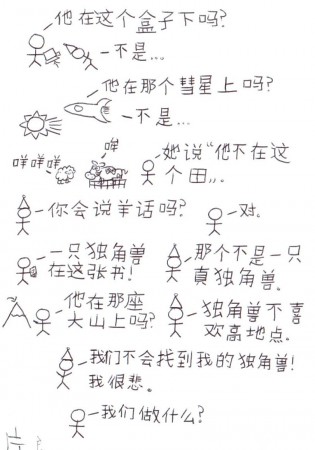 他在这个盒子下吗?
不是...
他在那个彗星上吗?
不是...
咩咩咩
哞
她说“他不在这
个田”。
你会说羊话吗?
对。
一只独角兽
在这张书!
那个不是一只
真独角兽。
他在那座
大山上吗?
独角兽不喜
欢高地点。
我们不会找到我的独角兽!
我很悲。
我们做什么?